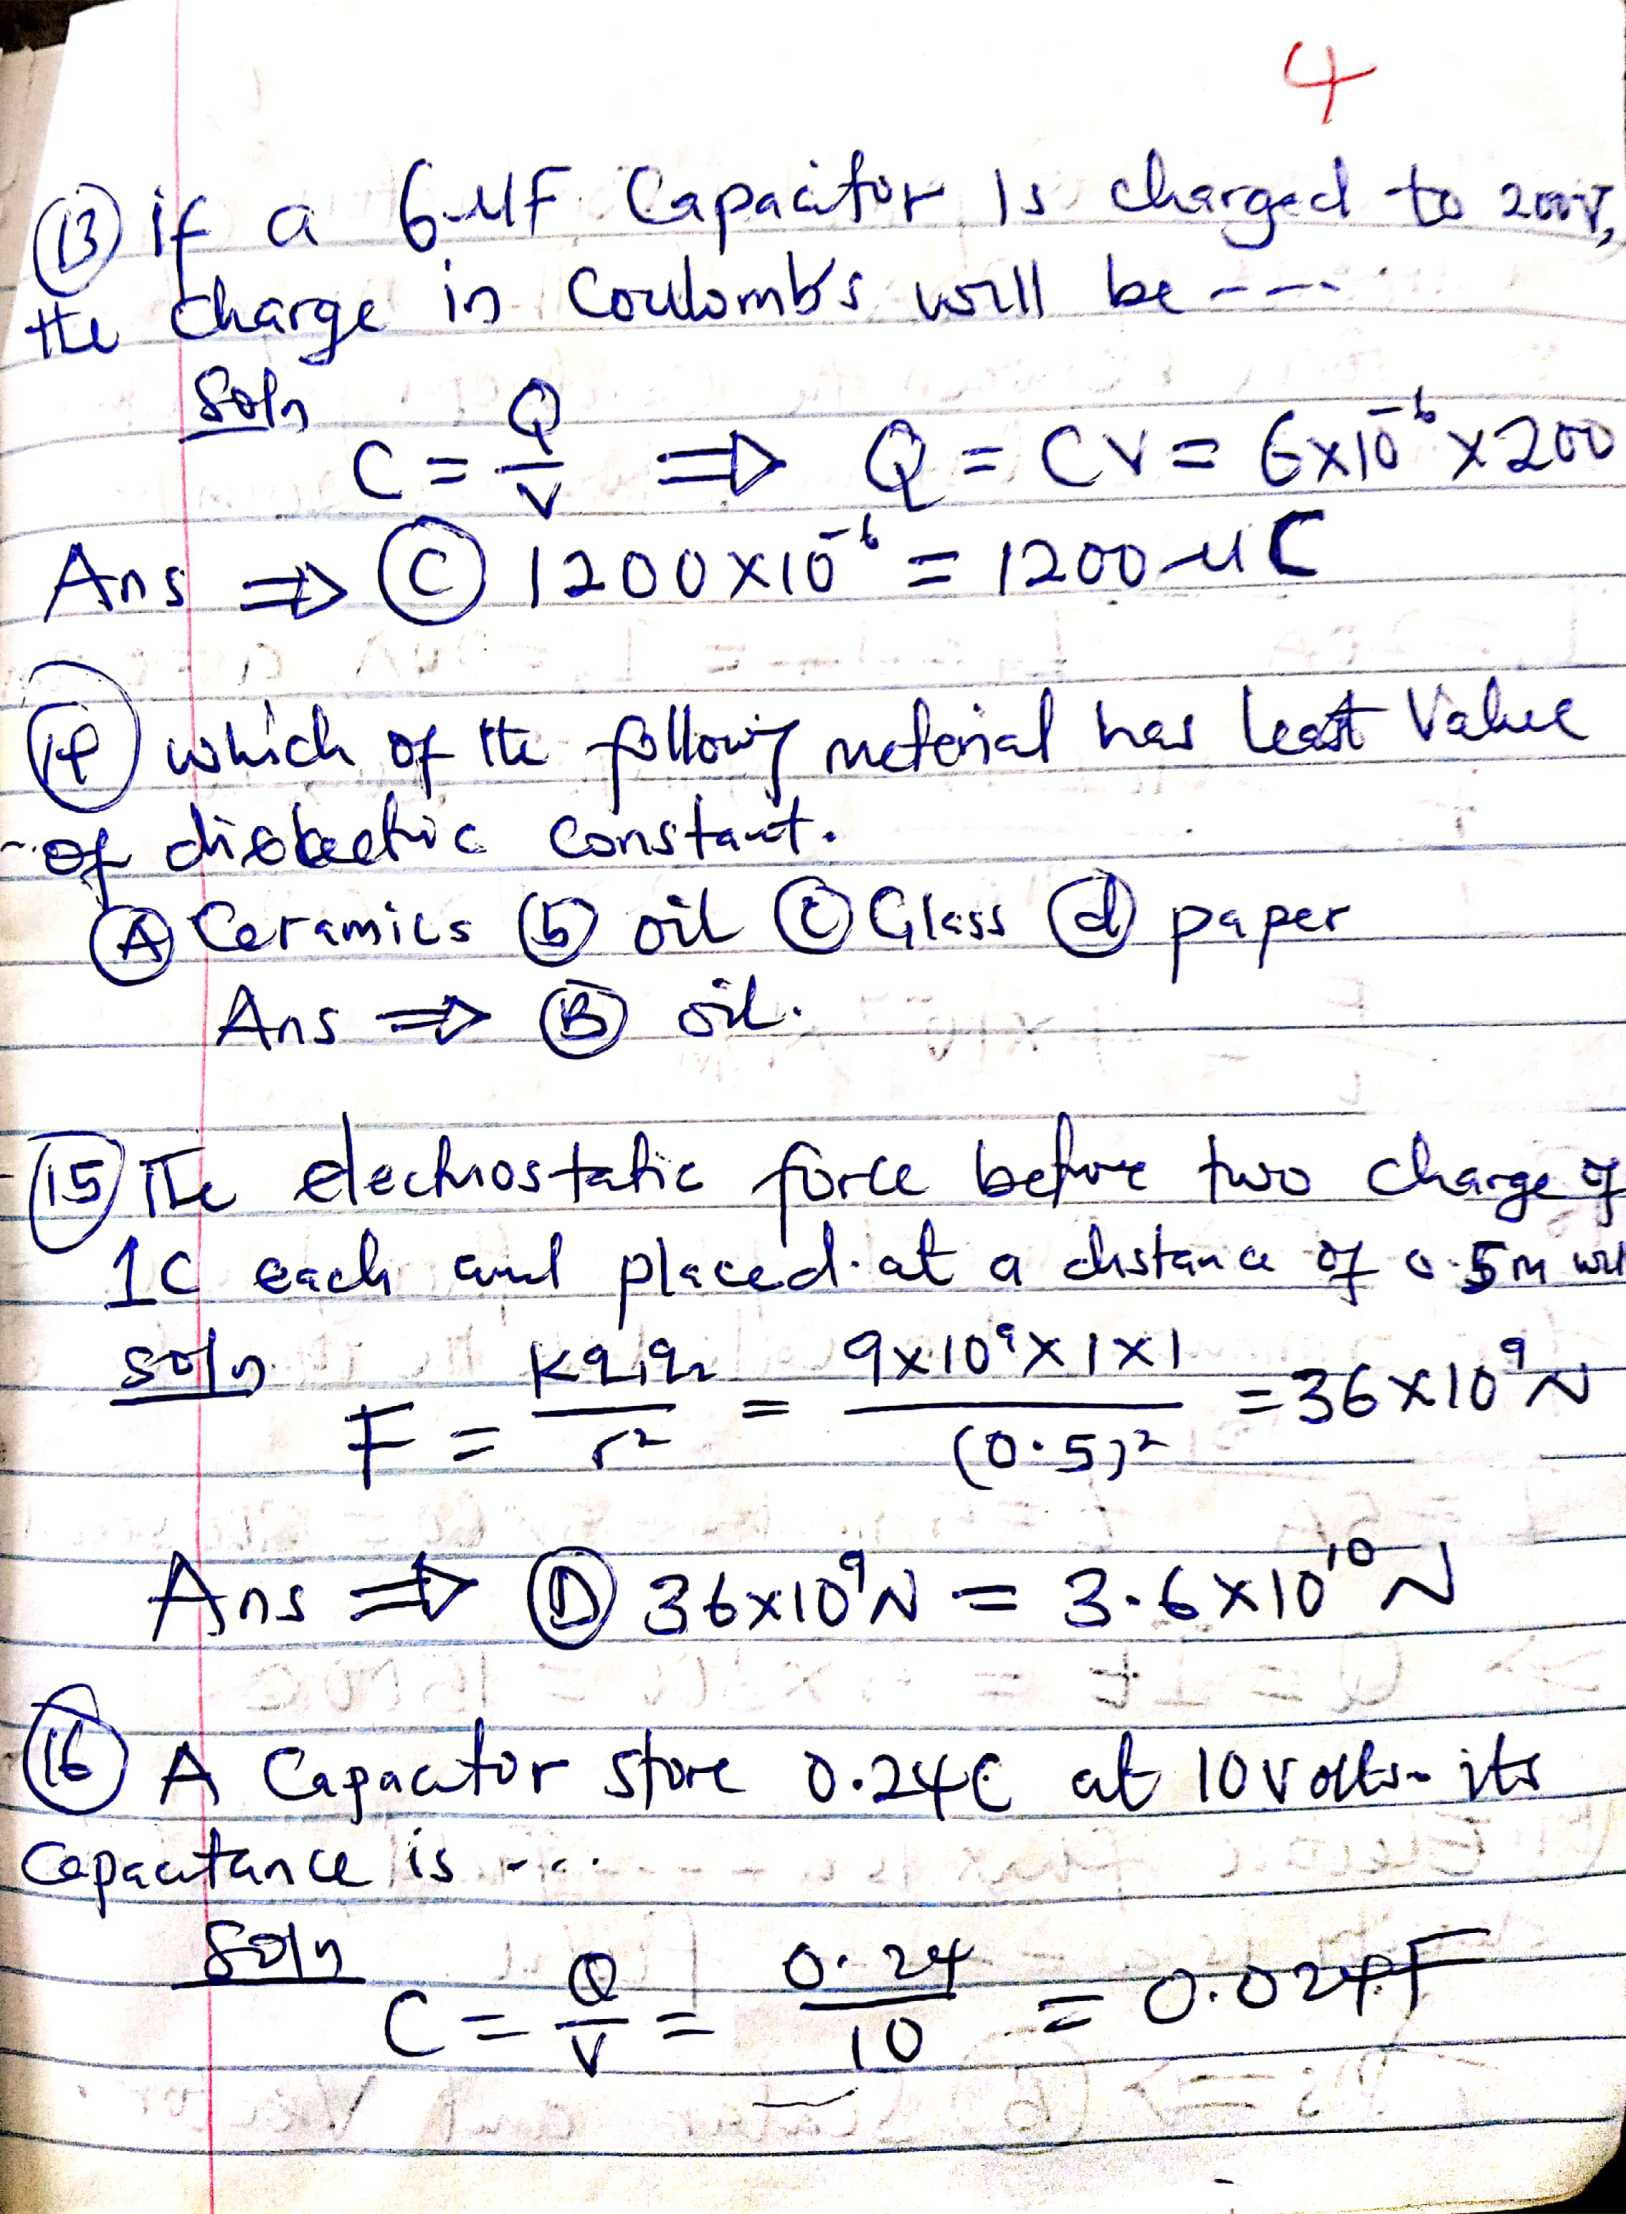 4
(13) if a 6 μF Capacitor Is charged to 200V,
the charge in Coulomb's will be ---
Soln
C = Q/V ⇒ Q = CV = 6x10⁻⁶ x 200
Ans ⇒ (C) 1200x10⁻⁶ = 1200 μC
(14) which of the following material has least Value
of dielectric constant.
(A) Ceramics (b) oil (C) Glass (d) paper
Ans ⇒ (B) oil.
(15) The electrostatic force before two charge of
1C each and placed at a distance of 0.5m will
Soln
F = Kq₁q₂/r² = 9x10⁹x1x1/(0.5)² = 36x10⁹N
Ans ⇒ (D) 36x10⁹N = 3.6x10¹⁰N
(16) A Capacitor store 0.24C at 10volts. its
Capacitance is ---
Soln
C = Q/V = 0.24/10 = 0.024F